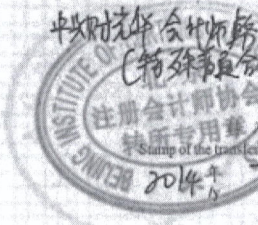 中兴财光华会计师事务
(特殊普通合
BEIJING INSTITUTE OF
注册会计师协会
转所专用章
Stamp of the transfer
2014年